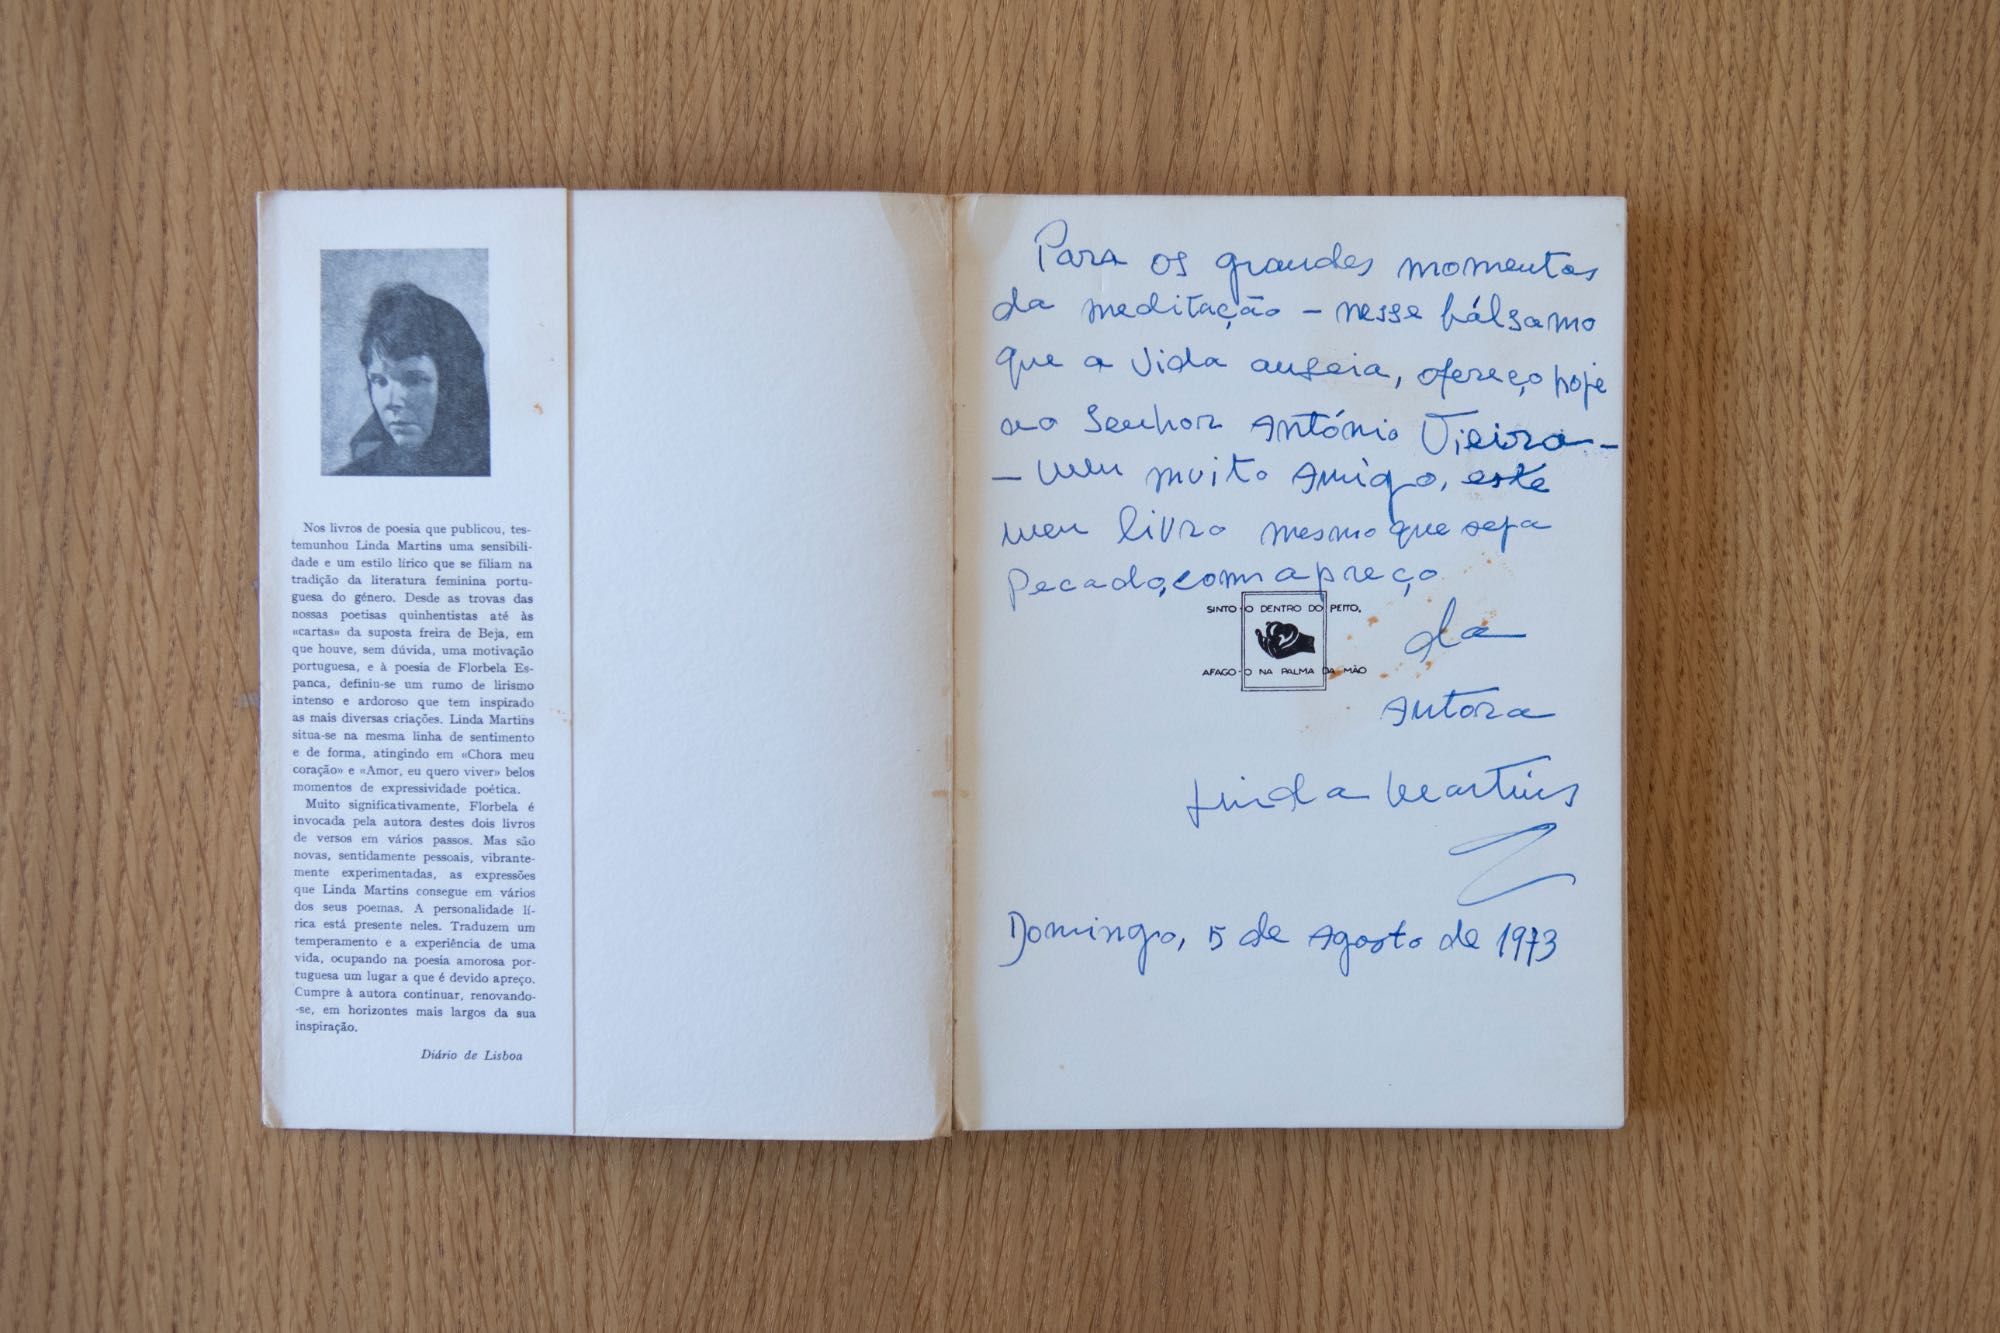 Nos livros de poesia que publicou, tes-
temunhou Linda Martins uma sensibili-
dade e um estilo lírico que se filiam na
tradição da literatura feminina portu-
guesa do género. Desde as trovas das
nossas poetisas quinhentistas até às
«cartas» da suposta freira de Beja, em
que houve, sem dúvida, uma motivação
portuguesa, e à poesia de Florbela Es-
panca, definiu-se um rumo de lirismo
intenso e ardoroso que tem inspirado
as mais diversas criações. Linda Martins
situa-se na mesma linha de sentimento
e de forma, atingindo em «Chora meu
coração» e «Amor, eu quero viver» belos
momentos de expressividade poética.
Muito significativamente, Florbela é
invocada pela autora destes dois livros
de versos em vários passos. Mas são
novas, sentidamente pessoais, vibrante-
mente experimentadas, as expressões
que Linda Martins consegue em vários
dos seus poemas. A personalidade lí-
rica está presente neles. Traduzem um
temperamento e a experiência de uma
vida, ocupando na poesia amorosa por-
tuguesa um lugar a que é devido apreço.
Cumpre à autora continuar, renovando-
-se, em horizontes mais largos da sua
inspiração.
Diário de Lisboa
Para os grandes momentos
da meditação – nesse bálsamo
que a vida anseia, ofereço hoje
ao Senhor António Vieira –
– meu muito Amigo, este
meu livro mesmo que seja
Pecado, com apreço
SINTO-O DENTRO DO PEITO,
AFAGO-O NA PALMA DA MÃO
da
Autora
Linda Martins
Domingo, 5 de Agosto de 1973